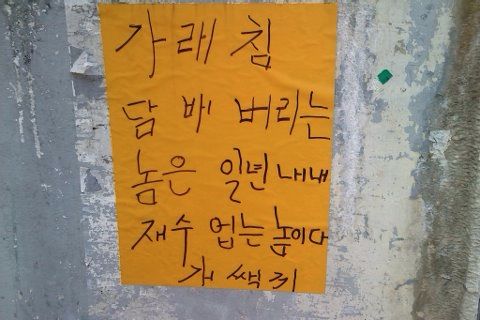 가래침
담배 버리는
놈은 일년내내
재수 업는 놈이다
개쌕끼